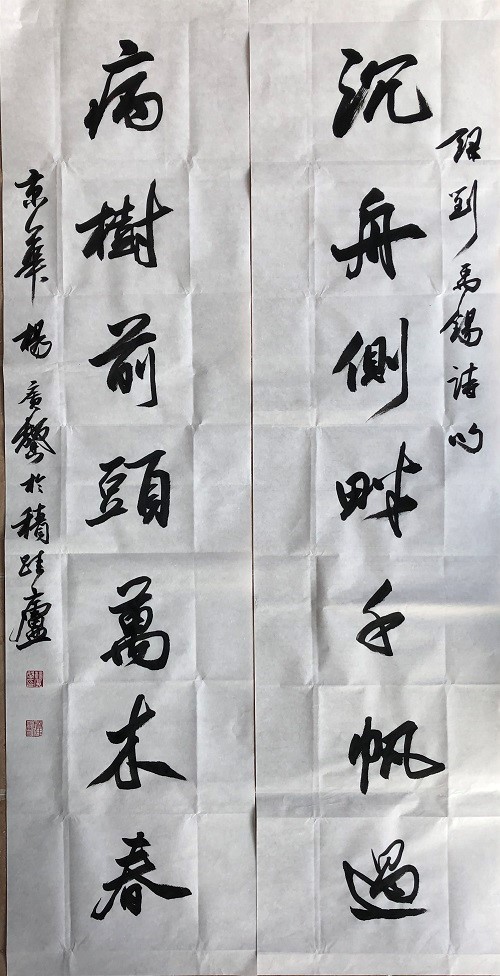 录刘禹锡诗句
沉舟側畔千帆過
病樹前頭萬木春
京華楊廣馨於積跬廬